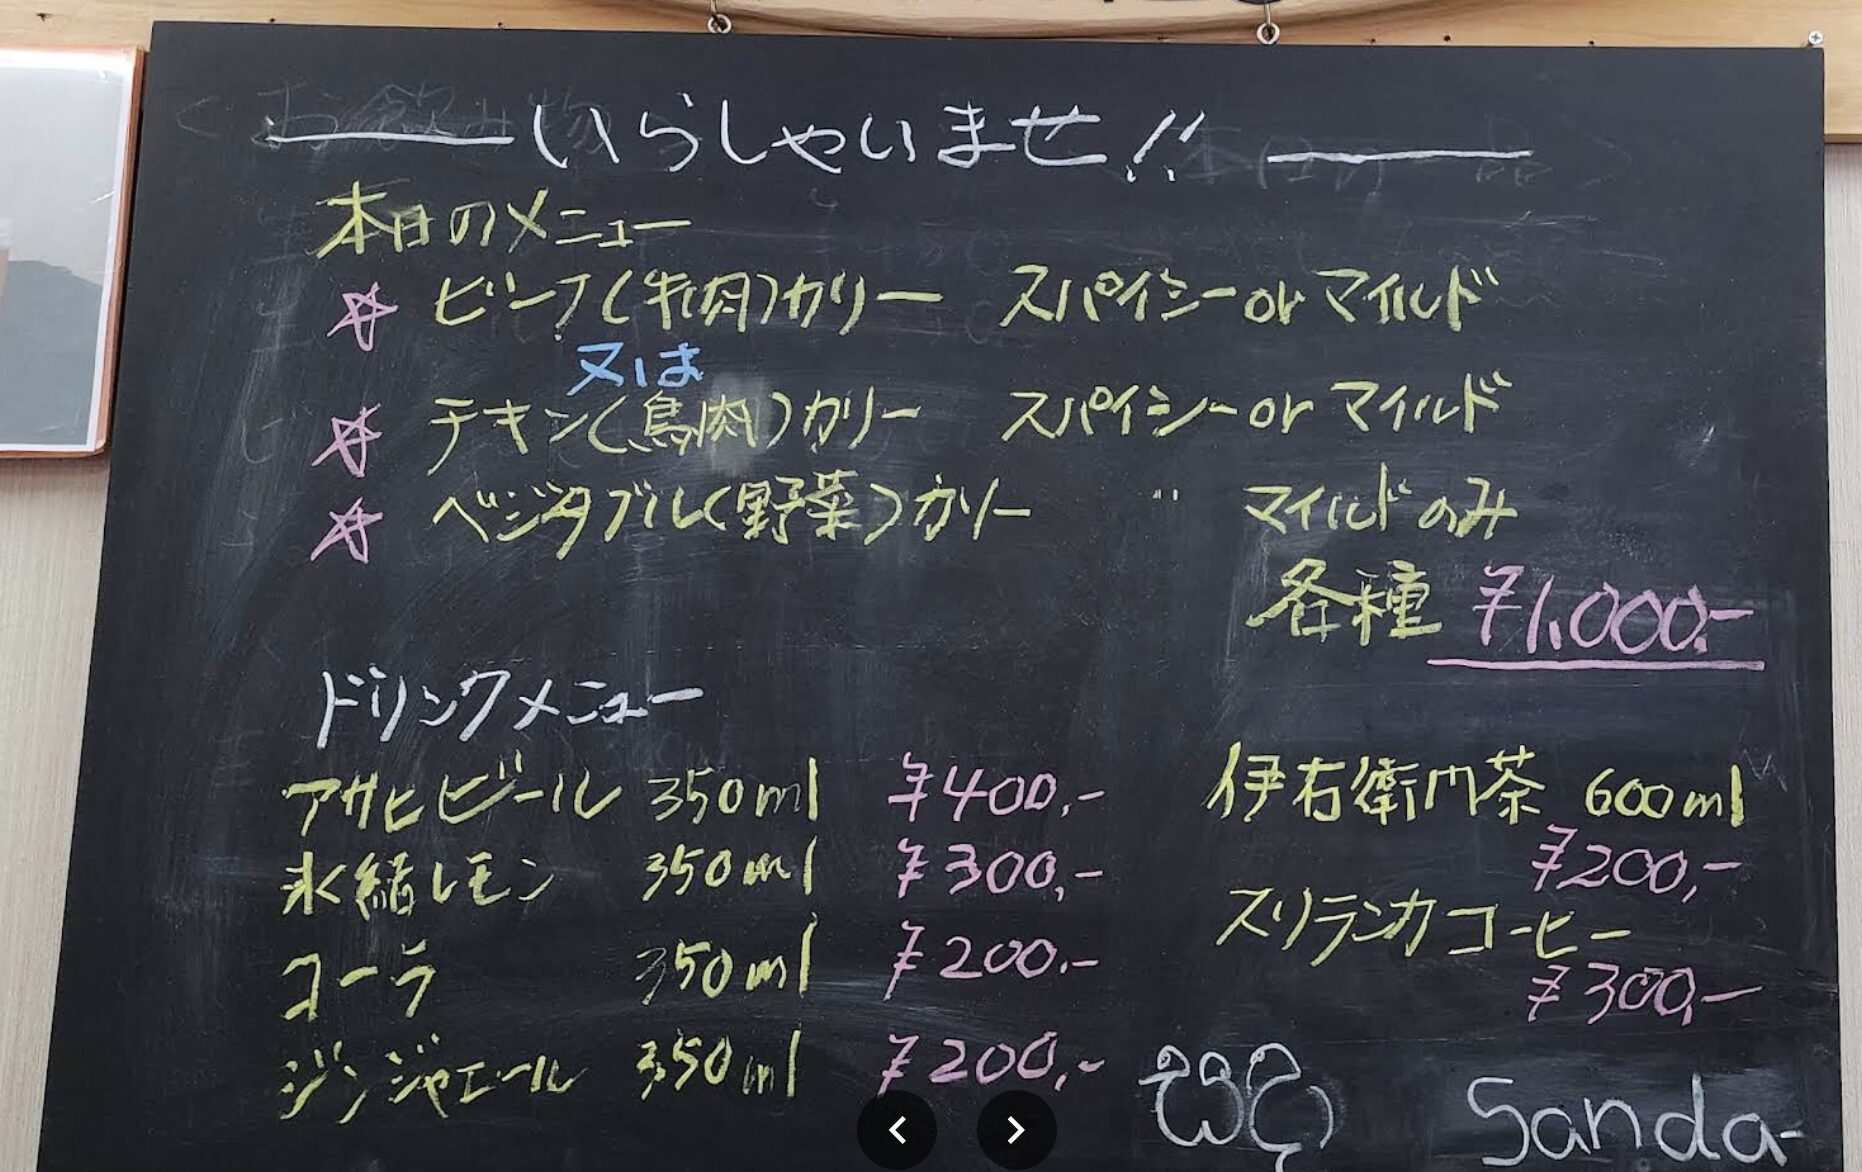 いらしゃいませ!!
本日のメニュー
☆ ビーフ(牛肉)カリー スパイシーorマイルド
又は
☆ チキン(鳥肉)カリー スパイシーorマイルド
☆ ベジタブル(野菜)カリー " マイルドのみ
各種 ¥1,000.-
ドリンクメニュー
アサヒビール 350ml ¥400.-
氷結レモン 350ml ¥300.-
コーラ 350ml ¥200.-
ジンジャエール 350ml ¥200.-
伊右衛門茶 600ml
¥200.-
スリランカコーヒー
¥300.-
Sanda